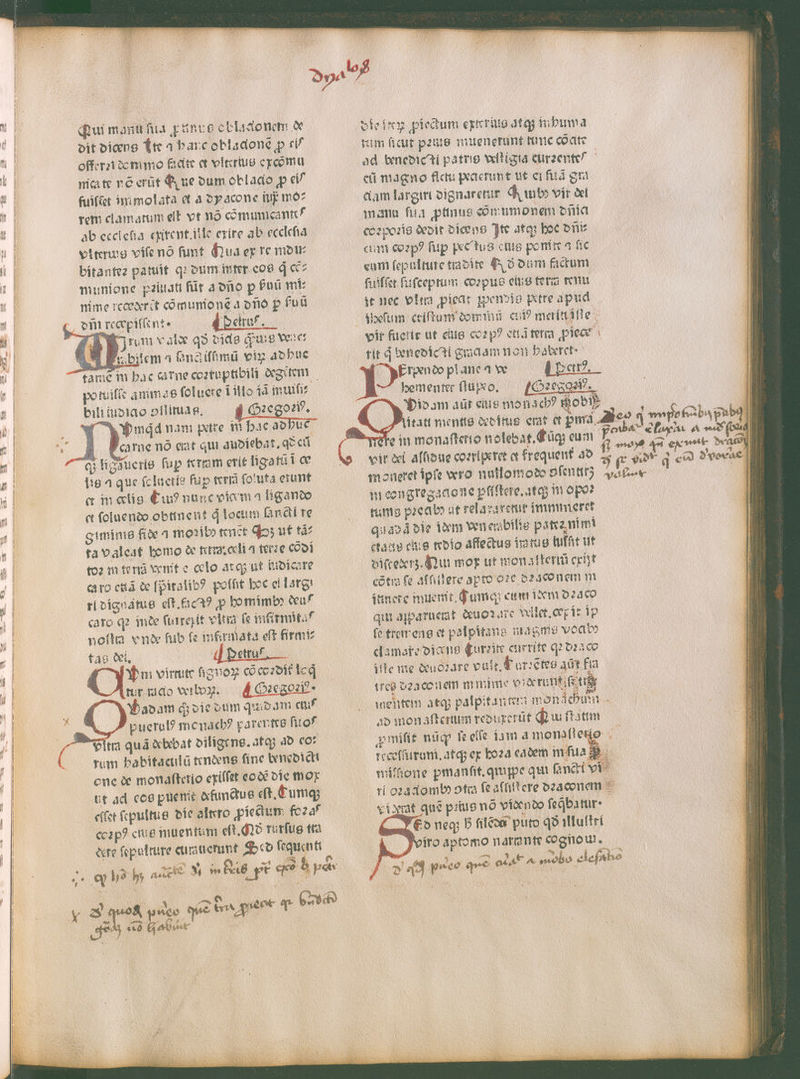 dyalog
Qui manu sua ꝓtinus oblacionem de
dit dicens Ite ⁊ hanc oblacionē ꝓ eis
offerri domino facite et vlterius excōmu
nicate nō erūt Que dum oblacio ꝓ eis
fuisset immolata et a dyacone iux mo⸗
rem clamatum est vt nō cōmunicantes
ab ecclesia exirent.ille exire ab ecclesia
vlterius vise nō sunt Qua ex re indu⸗
bitanter patuit ꝙ dum inter eos q̄ cō⸗
munione priuati sūt a dn̄o ꝑ suū mi⸗
nime recederēt cōmunionē a dn̄o ꝑ suū
dn̄i recepissent. Petrus.
MIrum valde qd̄ dicis quis vene⸗
rabilem ⁊ sanctissimū viꝝ adhuc
tamē in hac carne corruptibili degētem
potuisse animas soluere ī illo iā inuisi⸗
bili iudicio Gregoriꝰ.
Nunquid nam petre in hac adhuc
carne nō erat qui audiebat. qd̄cū
qꝫ ligaueris suꝑ terram erit ligatū ī ce
lis ⁊ que solueris suꝑ terrā soluta erunt
et in celis Cuiꝰ nunc vicem ⁊ ligando
et soluendo obtinent q̄ locum sancti re
giminis fide ⁊ moribꝰ tenēt Sꝫ ut tā⸗
ta valeat homo de terra.celi ⁊ terre cōdi
tor in terrā venit e celo atqꝫ ut iudicare
caro etiā de sp̄italibꝰ possit hoc ei largi
ri dignatus est.factꝰ ꝓ hominibꝰ deus
caro qꝛ inde surrexit vltra se infirmitas
nostra vnde sub se infirmata est firmi⸗
tas dei. Petrus
CVm virtute signoꝝ cōcordit loq̄
tur racio verboꝝ. Gregoriꝰ.
QVadam qꝫ die dum quidam eius
puerulꝰ monachꝰ parentes suos
vltra quā debebat diligens.atqꝫ ad eo⸗
rum habitaculū tendens sine benedicti
one de monasterio exisset eodē die mox
ut ad eos ꝑuenit defunctus est.Cumqꝫ
esset sepultus die altero ꝓiectum foras
corpꝰ eius inuentum est.Qd̄ rursus tra
dere sepulture curauerunt Sed sequenti
die iteꝝ ꝓiectum exterius atqꝫ inhuma
tum sicut prius inuenerunt tunc cōcite
ad benedicti patris vestigia currentes
cū magno fletu pecierunt ut ei suā gra
ciam largiri dignaretur Quibꝰ vir dei
manu sua ꝓtinus cōmunionem dn̄ici
corporis dedit dicens Ite atqꝫ hoc dn̄i⸗
cum corpꝰ suꝑ pectus eius ponite ⁊ sic
eum sepulture tradite Qd̄ dum factum
fuisset susceptum corpus eius terra tenu
it nec vltra ꝓiecit ꝑpendis petre apud
ihesum cristum dominū cuiꝰ meriti iste
vir fuerit ut eius corpꝰ etiā terra ꝓiece
rit q̄ benedicti graciam non haberet.
PErpendo plane ⁊ ve Petrꝰ.
hementer stupeo. Gregoriꝰ.
QVidam aūt eius monachꝰ mobi
litati mentis deditus erat et ꝑma
nere in monasterio nolebat.Cūqꝫ eum
vir dei assidue corriperet et frequenter ad
moneret ipse vero nullomodo sentirꝫ
in congregacione ꝑsistere.atqꝫ in opor
tunis precibꝰ ut relaxaretur immineret
quadā die idem venerabilis pater nimi
etatis eius tedio affectus iratus iussit ut
discederꝫ.Qui mox ut monasteriū exijt
cōtra se assistere aperto ore draconem in
itinere inuenit.Cumqꝫ eum idem draco
qui apparuerat deuorare vellet.cepit ip
se tremens et palpitans magnis vocibꝰ
clamare dicens Currite currite qꝛ draco
iste me deuorare vult.Currētes aūt fra
tres draconem minime viderunt.sꝫ tre
mentem atqꝫ palpitantem monachum
ad monasterium reduxerūt Qui statim
ꝓmisit nūqꝫ se esse iam a monasterio
recessurum.atqꝫ ex hora eadem in sua ꝓ
missione ꝑmansit.quippe qui sancti vi
ri oracionibꝰ cōtra se assistere draconem
viderat quē prius nō videndo seq̄batur.
SEd neqꝫ hoc silēdū puto qd̄ illustri
viro aptonio narrante cognoui.